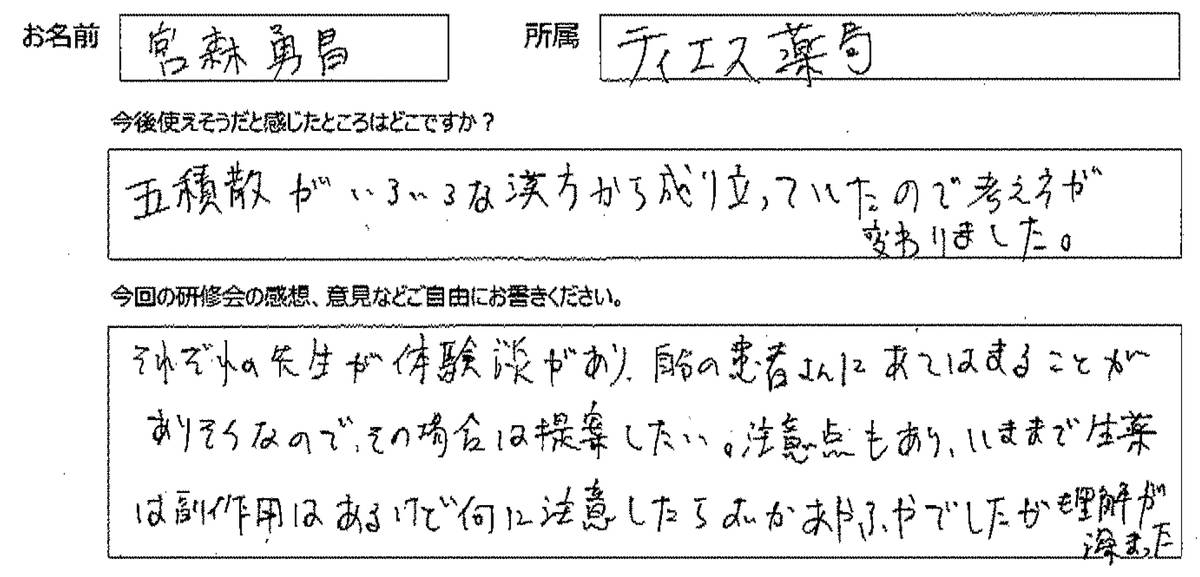 お名前 宮森勇昌 所属 ティエス薬局
今後使えそうだと感じたところはどこですか？
五積散がいろいろな漢方から成り立っていたので考え方が
変わりました。
今回の研修会の感想、意見などご自由にお書きください。
それぞれの先生が体験談があり、自分の患者さんにあてはまることが
ありそうなので、その場合は提案したい。注意点もあり、いままで生薬
は副作用はあるけど何に注意したらよいかあやふやでしたが理解が
深まった